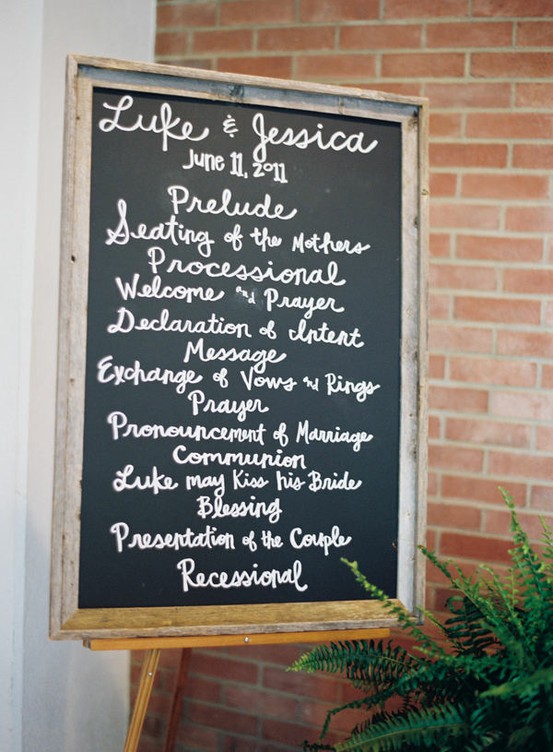 Luke & Jessica
June 11, 2011
Prelude
Seating of the Mothers
Processional
Welcome and Prayer
Declaration of Intent
Message
Exchange of Vows and Rings
Prayer
Pronouncement of Marriage
Communion
Luke may Kiss his Bride
Blessing
Presentation of the Couple
Recessional